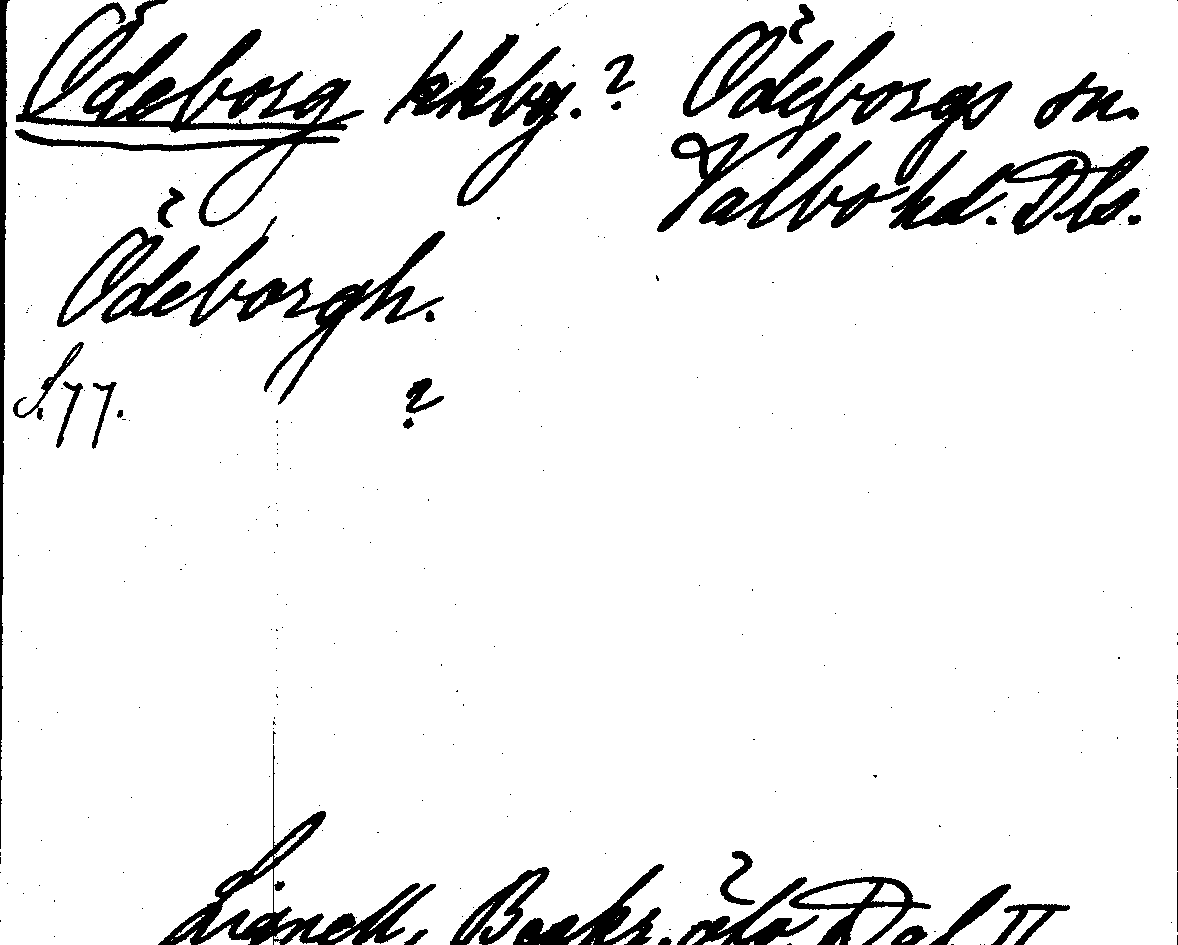 Ödeborg kkby.? Ödeborgs sn.
Valbo hd. Dls.
Ödeborgh.
S. 77. ?
Lignell, Beskr. öfv. Dal II